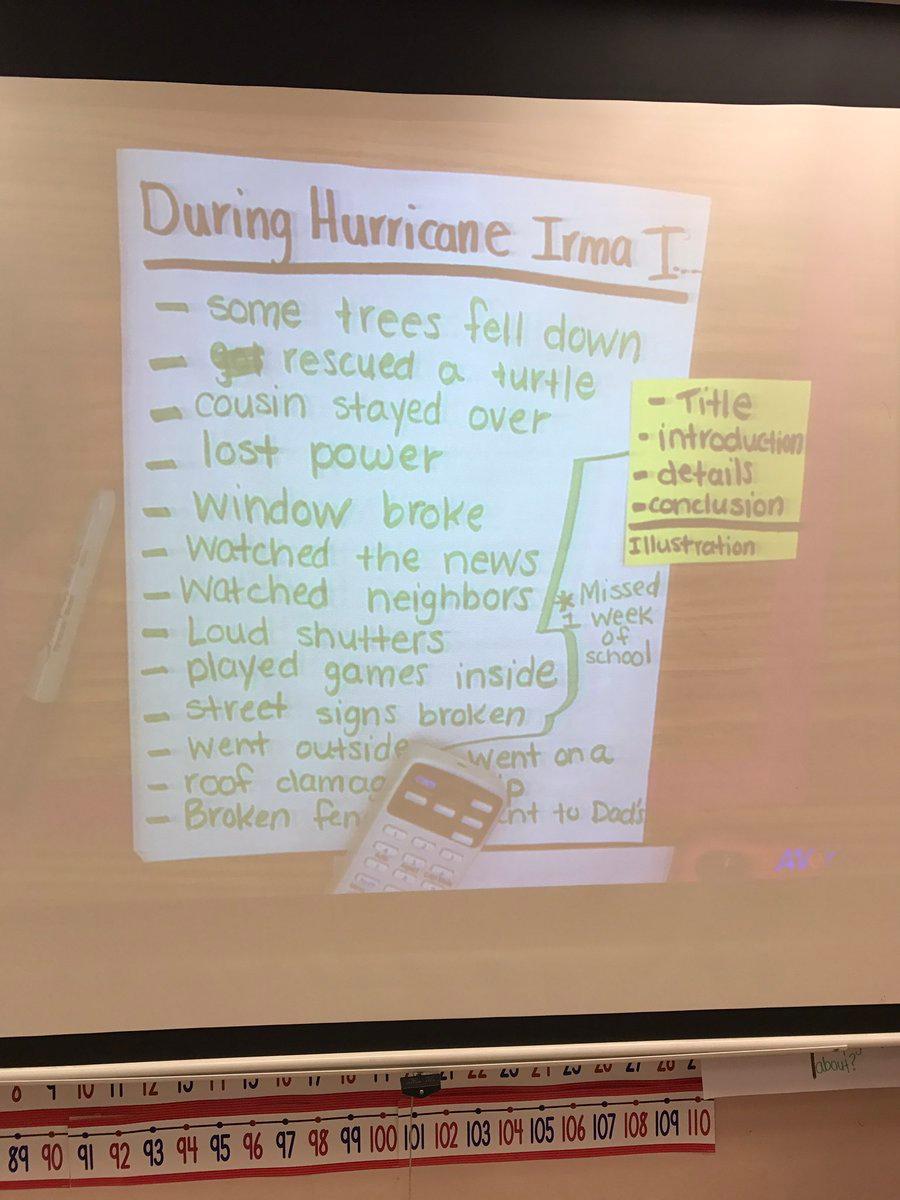 During Hurricane Irma I...
- some trees fell down
- got rescued a turtle
- cousin stayed over
- lost power
- window broke
- watched the news
- watched neighbors
- Loud shutters
- played games inside
- street signs broken
- went outside
- roof
- Broken
- went on a
to Dad's
* Missed
1 week
of
school
- Title
- introduction
- details
- conclusion
Illustration
about?
8 9 10 11 12 13 14 15 16 17 18 21 22 23 24 25 26 27 28
89 90 91 92 93 94 95 96 97 98 99 100 101 102 103 104 105 106 107 108 109 110